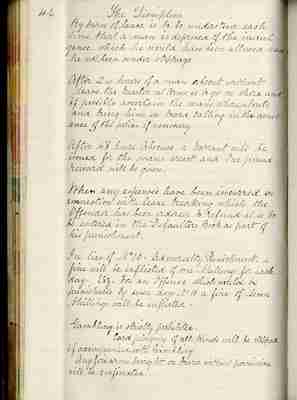 42
The Discipline
By term of leave is to be understood each
time that a man is deprived of the
which he would have been allowed had
he not been under stoppage.
After 24 hours of a man absent without
leave the Master at Arms is to go on shore and
if possible ascertain the mans whereabouts
and bring him on board calling in the assist
ance of the police if necessary.
After 48 hours absence a warrant will be
issued for the mans arrest and One pound
reward will be given.
When any expenses have been incurred in
connection with leave breaking which the
offender has been ordered to refund it is to
be entered in the Defaulters Book as part of
his punishment.
In lieu of No 10 Punishment a
fine will be inflicted of one Shilling for each
day. For an offence which would be
punishable by days No 10 a fine of
Shillings will be inflicted.
Gambling is strictly prohibited.
Card playing of all kinds will be
if accompanied with Gambling
Any brought on board without permission
will be confiscated.